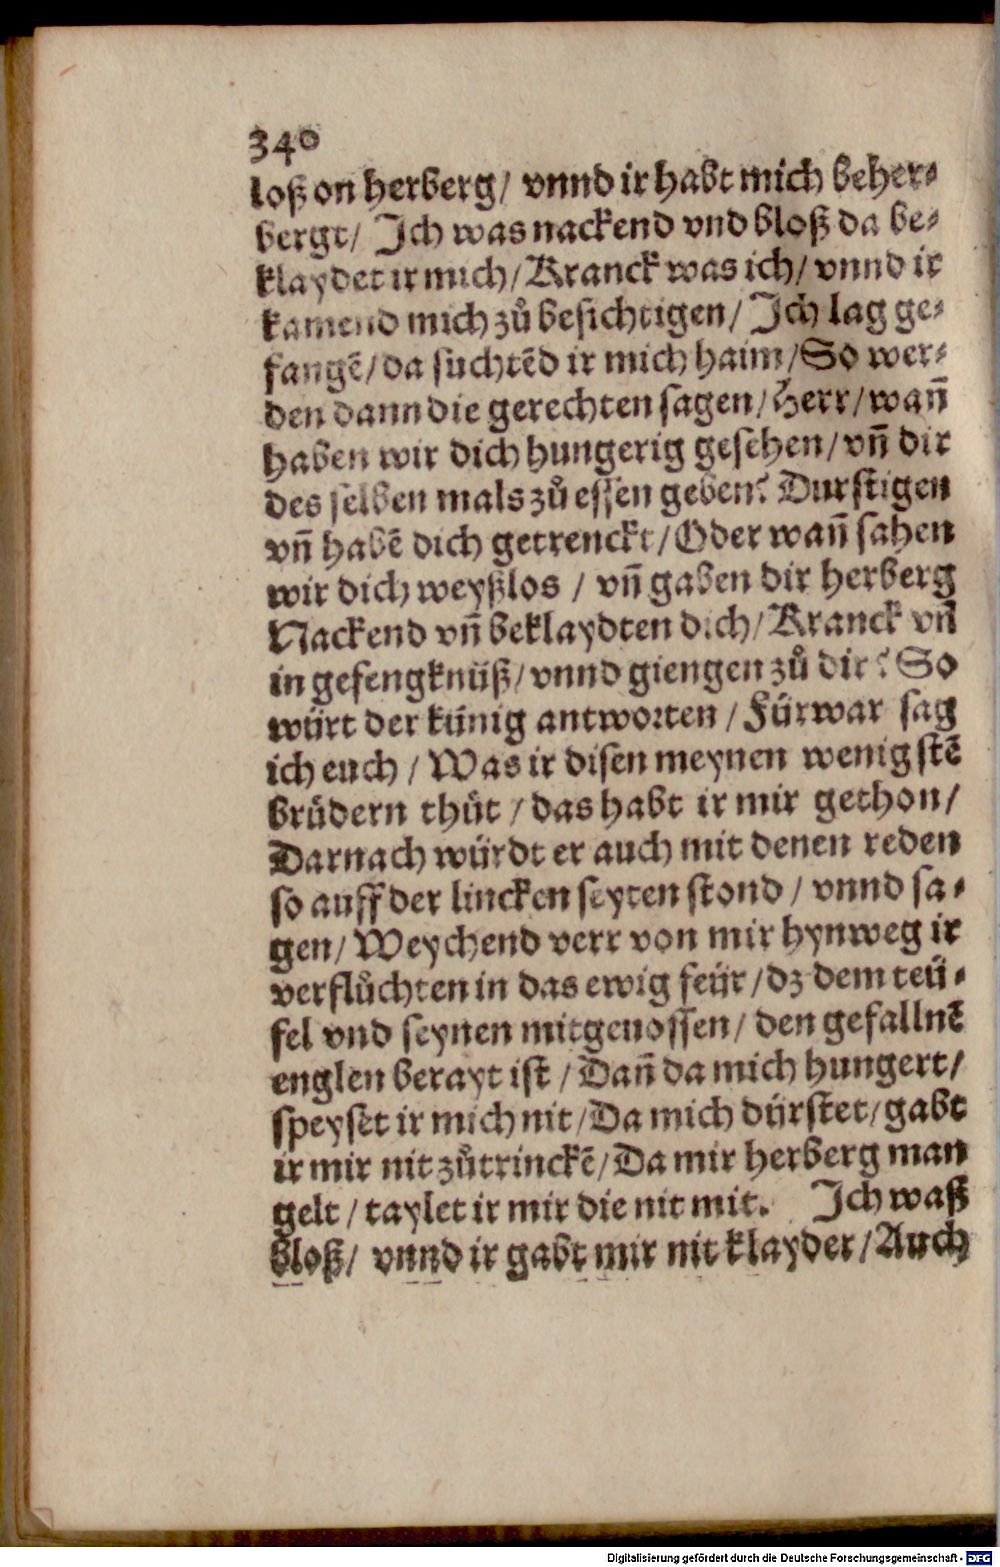 340
loß on herberg/ vnnd ir habt mich beher⸗
bergt/ Ich was nackend vnd bloß da be⸗
klaydet ir mich/ Kranck was ich/ vnnd ir
kamend mich zů besichtigen/ Ich lag ge⸗
fangē/ da suchtēd ir mich haim/ So wer⸗
den dann die gerechten sagen/ Herr/ wañ
haben wir dich hungerig gesehen/ vñ dir
des selben mals zů essen geben? Durstigen
vñ habē dich getrenckt/ Oder wañ sahen
wir dich weyßlos / vñ gaben dir herberg
Nackend vñ beklaydten dich/ Kranck vñ
in gefengknüß/ vnnd giengen zů dir? So
würt der künig antworten / Fürwar sag
ich euch / Was ir disen meynen wenigstē
brůdern thůt / das habt ir mir gethon/
Darnach würdt er auch mit denen reden
so auff der lincken seyten stond / vnnd sa⸗
gen/ Weychend verr von mir hynweg ir
verflůchten in das ewig feür/ dz dem teü⸗
fel vnd seynen mitgenossen/ den gefallnē
englen berayt ist / Dañ da mich hungert/
speyset ir mich nit/ Da mich dürstet/ gabt
ir mir nit zůtrinckē/ Da mir herberg man
gelt / taylet ir mir die nit mit. Ich waß
bloß/ vnnd ir gabt mir nit klayder/ Auch
Digitalisierung gefördert durch die Deutsche Forschungsgemeinschaft - DFG